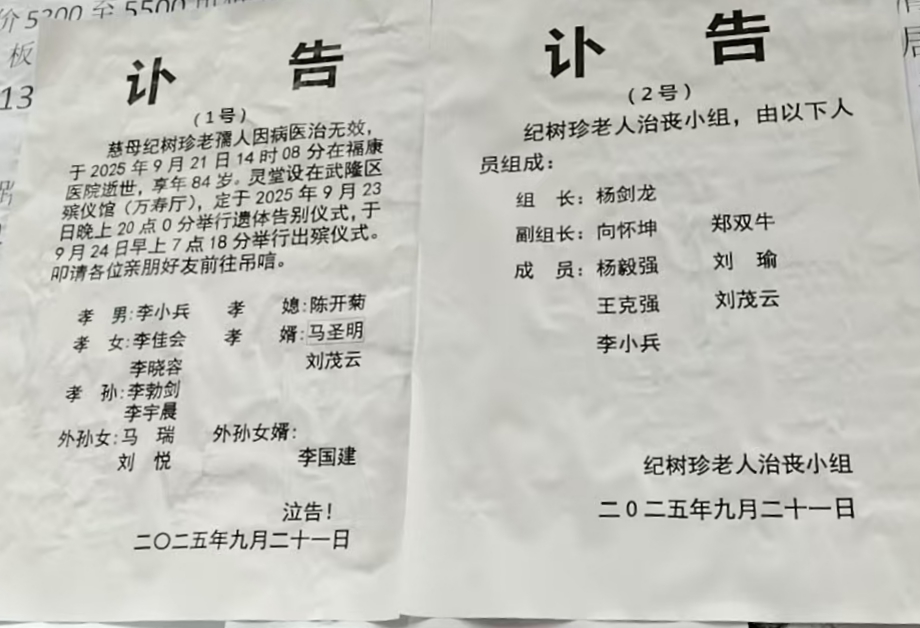 价5200至5500
板
13
讣 告
(1号)
慈母纪树珍老孺人因病医治无效，
于2025年9月21日14时08分在福康
医院逝世，享年84岁。灵堂设在武隆区
殡仪馆（万寿厅），定于2025年9月23
日晚上20点0分举行遗体告别仪式，于
9月24日早上7点18分举行出殡仪式。
叩请各位亲朋好友前往吊唁。
孝 男:李小兵 孝 媳:陈开菊
孝 女:李佳会 孝 婿:马圣明
李晓容 刘茂云
孝 孙:李勃剑
李宇晨
外孙女:马 瑞 外孙女婿:
刘 悦 李国建
泣告！
二〇二五年九月二十一日
讣 告
(2号)
纪树珍老人治丧小组，由以下人
员组成：
组 长：杨剑龙
副组长：向怀坤 郑双牛
成 员：杨毅强 刘 瑜
王克强 刘茂云
李小兵
纪树珍老人治丧小组
二0二五年九月二十一日
居